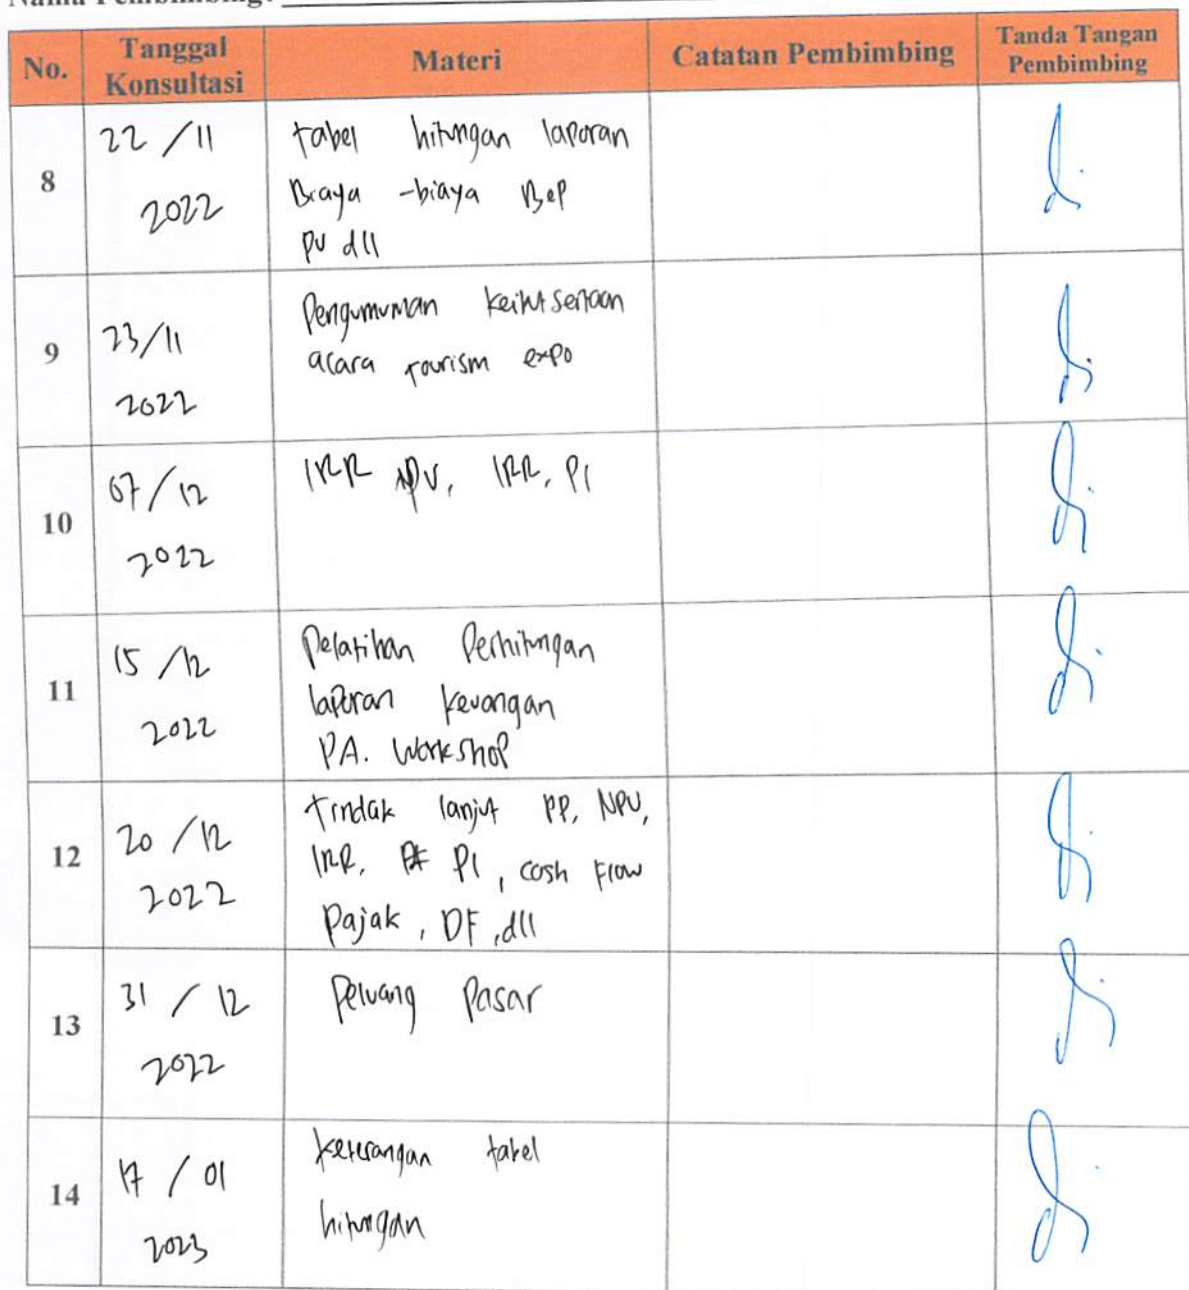 Nama Pembimbing:
No. Tanggal Konsultasi Materi Catatan Pembimbing Tanda Tangan Pembimbing
8
22 / 11
2022
tabel hitungan laporan
Biaya - biaya Bep
PV dll
9
23/11
2022
Pengumuman keikutsertaan
acara tourism expo
10
07/12
2022
IRR NPV, IRR, PI
11
15 /12
2022
Pelatihan Perhitungan
laporan keuangan
PA. Workshop
12
20 /12
2022
tindak lanjut PP, NPV,
IRR, PI, cash Flow
Pajak, DF, dll
13
31 / 12
2022
Peluang Pasar
14
17 / 01
2023
keterangan tabel
hitungan